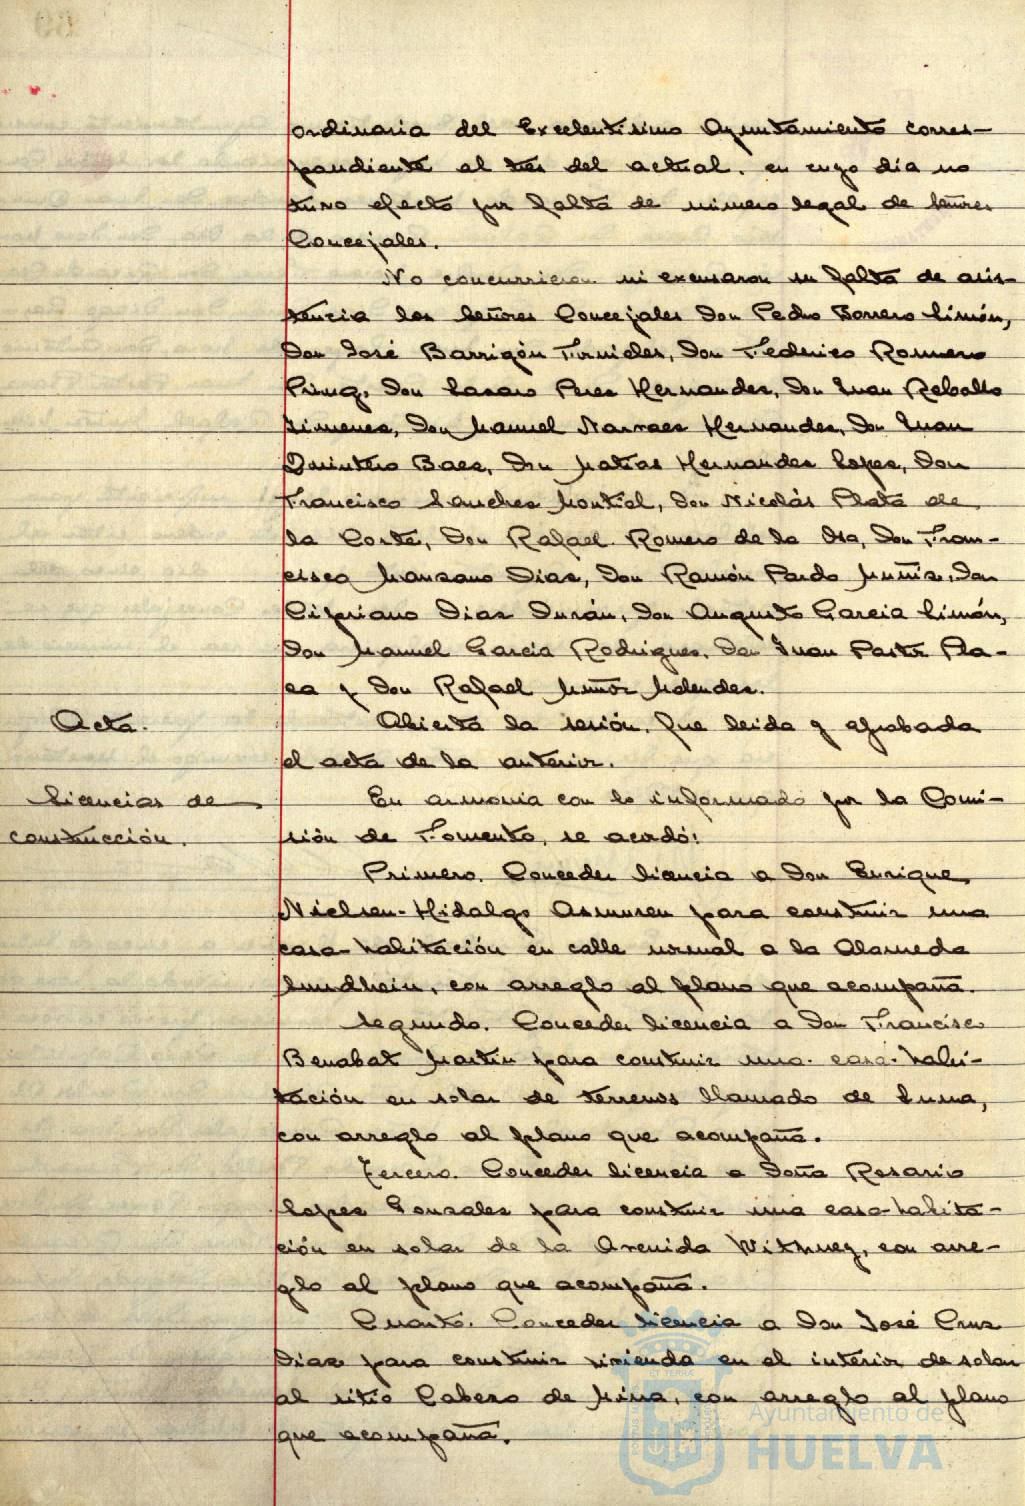 ordinaria del Excelentísimo Ayuntamiento corres-
pondiente al tres del actual, en cuyo día no
tuvo efecto por falta de número legal de Señores
Concejales.
No concurrieron ni excusaron su falta de asis-
tencia los Señores Concejales Don Pedro Borrero Limón,
Don José Barrigón Fornieles, Don Federico Romero
Don Lazaro Perez Hernandez, Don Juan Rebollo
Jimenez, Don Manuel Narvaez Hernandez, Don Juan
Quintero Baez, Don Matias Hernandez Lopez, Don
Francisco Sanchez Montiel, Don Nicolás Plata de
la Corte, Don Rafael Romero de la Osa, Don Fran-
cisco Manzano Diaz, Don Ramón Pardo Muñiz, Don
Cipriano Diaz Durán, Don Augusto Garcia Limón,
Don Manuel García Rodriguez, Don Juan Pastor Pla-
za y Don Rafael Muñoz Melendez.
Acta.
Abierta la sesión, fue leida y aprobada
el acta de la anterior.
Licencias de
construcción.
En armonia con lo informado por la Comi-
sión de Fomento, se acordó:
Primero. Conceder licencia a Don Enrique
Nielsen-Hidalgo Asmusen para construir una
casa-habitación en calle normal a la Alameda
Sundhein, con arreglo al plano que acompaña.
Segundo. Conceder licencia a Don Francisco
Benabat Martin para construir una casa-habi-
tación en solar de terrenos llamado de Luna,
con arreglo al plano que acompaña.
Tercero. Conceder licencia a Doña Rosario
Lopez Gonzales para construir una casa-habita-
ción en solar de la Avenida Withney, con arre-
glo al plano que acompaña.
Cuarto. Conceder licencia a Don José Cruz
Diaz para construir vivienda en el interior de solar
al sitio Cabezo de Mina, con arreglo al plano
que acompaña.
Ayuntamiento de
HUELVA